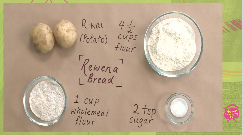 2 raw
(Potato)
4 1/2
cups
flour
[Rewena
Bread]
1 cup
wholemeal
flour
2 tsp
sugar